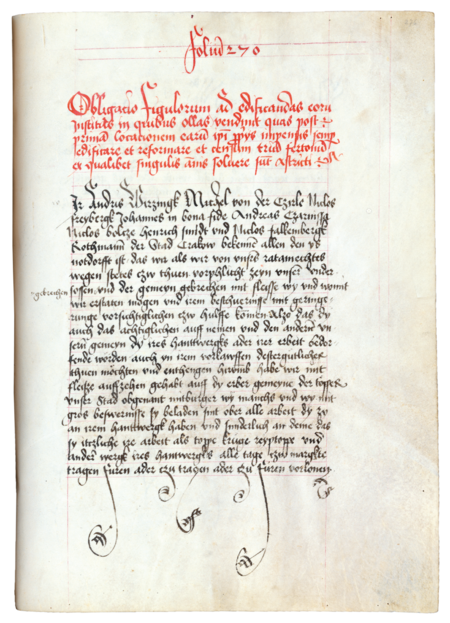 Folio 270
Obligacio Figulorum ad edificandas eorum
institas in quibus ollas vendunt quas post
primam locationem earum ipsi propriis impensis semper
edificare et reformare et censum trium fertonum
ex qualibet singulis annis solvere sunt astricti
Ir Andris Wirzingk Michel von der Czirle Niclos
freyberger Johannes in bona fide Andreas Czarnissa
Niclos belcze heinrich smidt vnd Niclos falkembergk
Rothmann der Stad Crakow bekennen allen den ys
notdorfft ist das wir als wir von vnsers ratamechtes
wegen stetes czw thuen vorphlicht zeyn vnser vnder
sossen vnd der gemeyn gebrechen mit fleisse wy vnd womit
gebrechen
wir erstaten mögen vnd irem beschwernisse mit geringe
runge vorsichtiglichen czw hulffe komen Also das dy
auch das achtiglichen auff nemen vnd den andern vn
sern gemeyn dy ires hantwergks ader irer erbeit bedor
fende worden auch yn irem vorlawffen destergutlicher
thuen möchten vnd entkegen hirvmb habe wir mit
fleisse auffzehen gehabt auff dy erber gemeyne der topper
vnser Stad obgenant mitburger wy manchs vnd wy mit
gros beswernisse sy beladen sint ober alle arbeit dy zy
an irem hanttwergk haben vnd sunderlich an deme das
sy itzliche ire arbeit als toppe kruge reyptope vnd
ander wergk ires hantwergks alle tage czw margkte
tragen furen ader czu tragen ader czu furen vorlonen